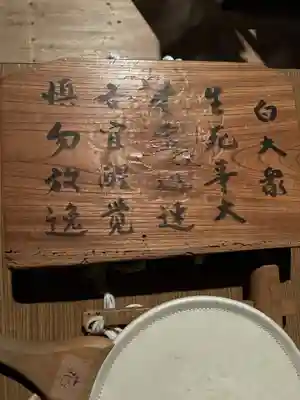 白大衆
生死事大
無常迅速
各宜醒覚
慎勿放逸